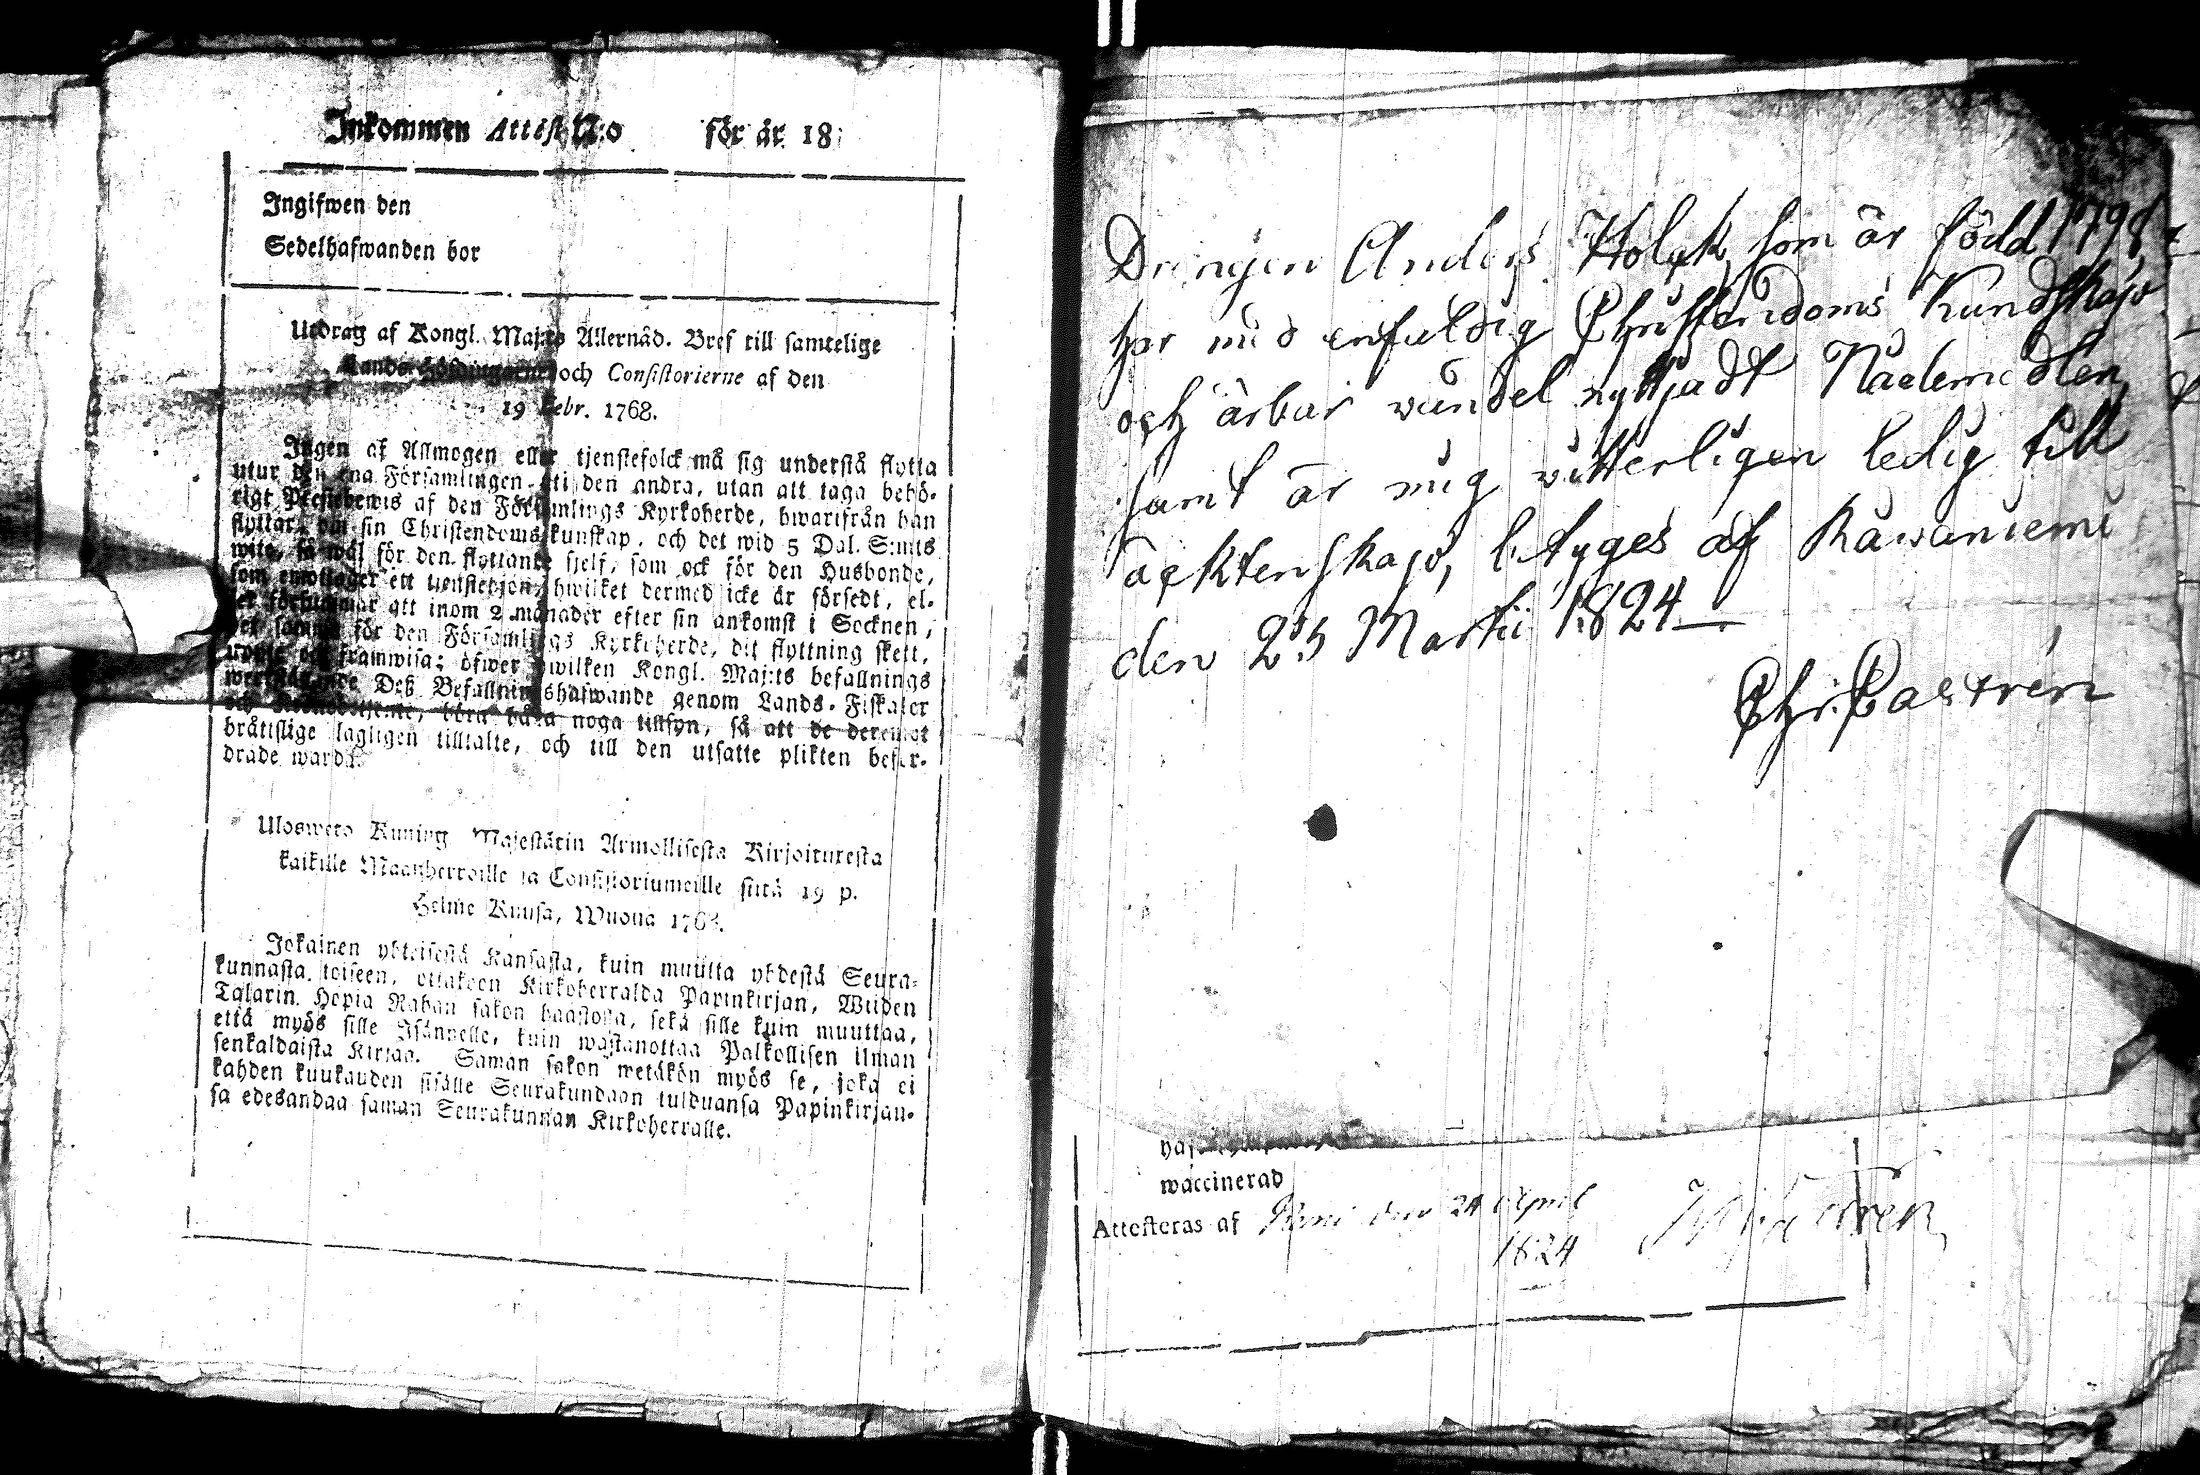 Inkommen Attest N:o för år 18
Ingifwen den
Sedelhafwanden bor
Utdrag af Kongl. Maj:ts Allernåd. Bref till samtelige
Lands-Höfdingarne och Consistorierne af den
19 Febr. 1768.
Ingen af Allmogen eller tjenstefolck må sig understå flytta
utur den ena Församlingen uti den andra, utan att taga behö-
rigt Prestebewis af den Församlings Kyrkoherde, hwarifrån han
flyttar, om sin Christendoms kunskap, och det wid 5 Dal. S:mts
wite, så wäl för den flyttande sjelf, som ock för den Husbonde,
som emottager ett tjenstehjon, hwilket dermed icke är försedt, el-
ler försummar att inom 2 månader efter sin ankomst i Socknen,
det samma för den Församlings Kyrkoherde, dit flyttning skett,
upte och framwisa; öfwer hwilken Kongl. Maj:ts befallnings
werkställande Deß Befallningshafwande genom Lands-Fiskaler
och Kronobetjente, böra hafa noga tillsyn, så att de deremot
bråtislige lagligen tilltalte, och till den utsatte plikten befor-
drade warda.
Uloswero Kuning Majestätin Armollisesta Kirjoituresta
kaikille Maanherroille ja Consistoriumeille siitä 19 p.
Helme Kuusa, Wuona 1768.
Jokainen yhteisestä Kansasta, kuin muutta yhdestä Seura-
kunnasta toiseen, ottakoon Kirkoherralda Papinkirjan, Wiiden
Talarin Hopia Rahan sakon haastolla, sekä sille kuin muuttaa,
että myös sille Isännelle, kuin wastanottaa Palkollisen ilman
senkaldaista Kirjaa. Saman sakon wetäkön myös se, joka ei
kahden kuukauden sisälle Seurakundaan tulduansa Papinkirjan-
sa edesandaa saman Seurakunnan Kirkoherralle.
Drängen Anders Holck som är född 1798,
har med enfaldig Christendoms Kundskap
och ärbar wandel nyttjadt Nådemedlen,
samt är mig vitterligen ledig till
äcktenskap, betyges af Råwaniemi
den 25 Martii 1824
Chr. Castrén
waccinerad
Attesteras af Kemi den 24 April
1824